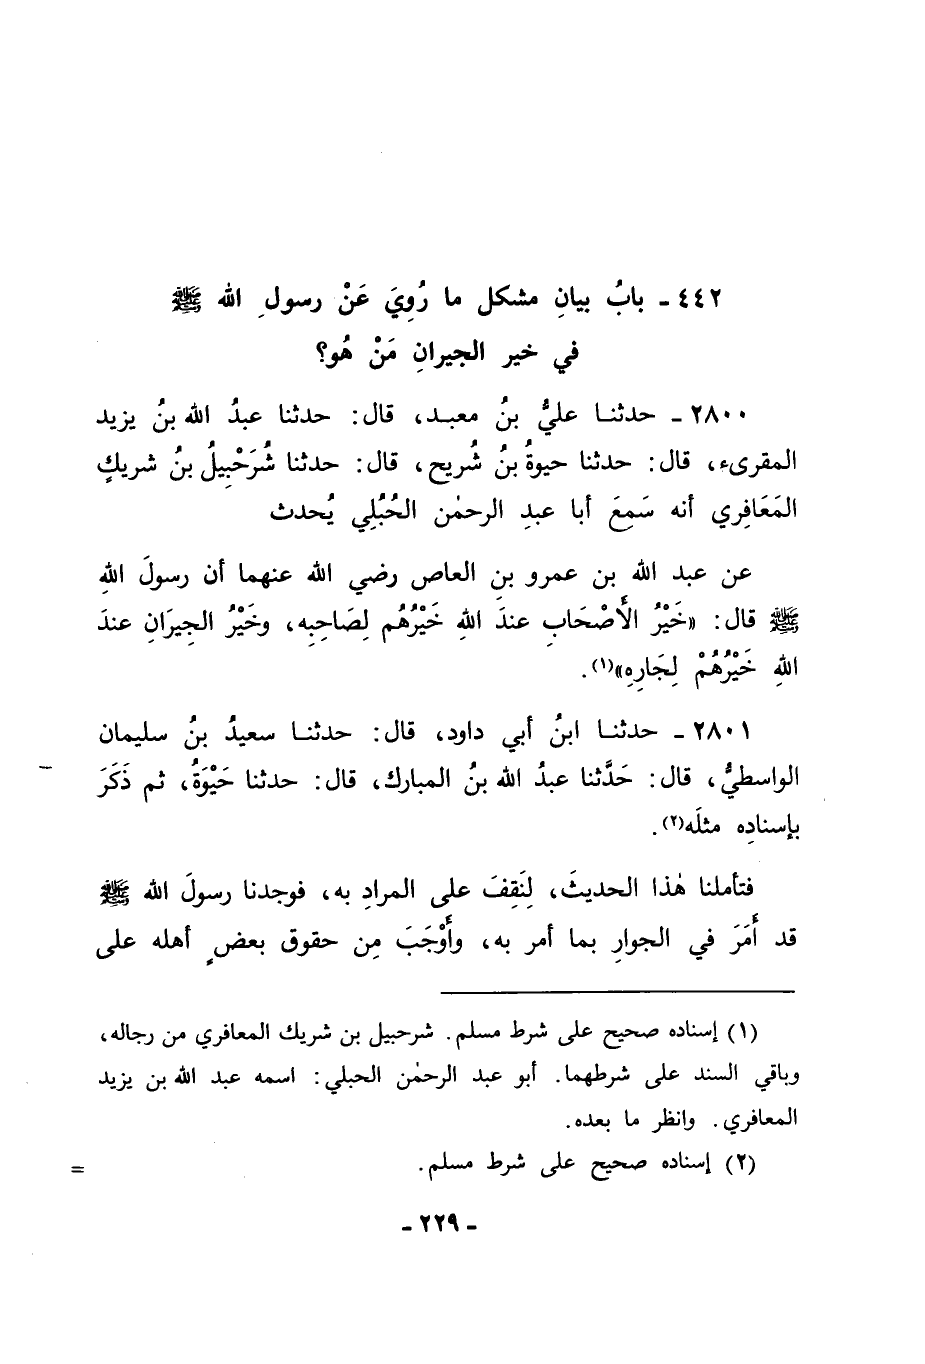 ٤٤٢ - بابُ بيانِ مشكل ما رُوِيَ عَنْ رسولِ الله ﷺ
في خير الجيرانِ مَنْ هُو؟
٢٨٠٠ - حدثنا عليُّ بنُ معبد، قال: حدثنا عبدُ الله بنُ يزيد
المقرىء، قال: حدثنا حيوةُ بنُ شُريح، قال: حدثنا شُرَحْبِيلُ بنُ شريكٍ
المَعَافِري أنه سَمِعَ أبا عبدِ الرحمٰن الحُبُلِي يُحدث
عن عبد الله بن عمرو بنِ العاص رضي الله عنهما أن رسولَ اللهِ
ﷺ قال: «خَيْرُ الأَصْحَابِ عندَ اللهِ خَيْرُهُم لِصَاحِبِه، وخَيْرُ الجِيرَانِ عندَ
اللهِ خَيْرُهُمْ لِجَارِهِ»(١).
٢٨٠١ - حدثنا ابنُ أبي داود، قال: حدثنا سعيدُ بنُ سليمان
الواسطيُّ، قال: حَدَّثنا عبدُ الله بنُ المبارك، قال: حدثنا حَيْوَةُ، ثم ذَكَرَ
بإسنادِه مثلَه(٢).
فتأملنا هٰذا الحديثَ، لِنَقِفَ على المرادِ به، فوجدنا رسولَ الله ﷺ
قد أَمَرَ في الجوارِ بما أمر به، وأَوْجَبَ مِن حقوق بعضٍ أهله على
(١) إسناده صحيح على شرط مسلم. شرحبيل بن شريك المعافري من رجاله،
وباقي السند على شرطهما. أبو عبد الرحمٰن الحبلي: اسمه عبد الله بن يزيد
المعافري. وانظر ما بعده.
(٢) إسناده صحيح على شرط مسلم. =
- ٢٢٩ -